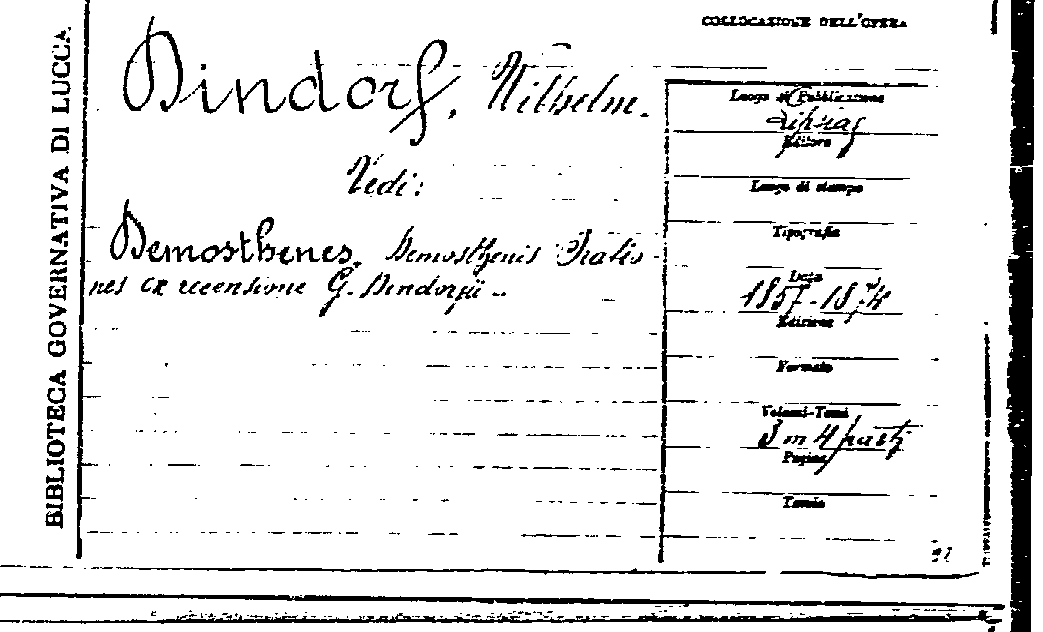 BIBLIOTECA GOVERNATIVA DI LUCCA
COLLOCAZIONE DELL'OPERA
Dindorf, Wilhelm.
Vedi:
Demosthenes. Demosthenis Oratio-
nes ex recensione G. Dindorfii -
Luogo di Pubblicazione
Lipsiae
Editore
Luogo di stampa
Tipografia
Data
1857-1874
Edizione
Formato
Volumi-Tomi
3 in 4 parti
Pagine
Tavole